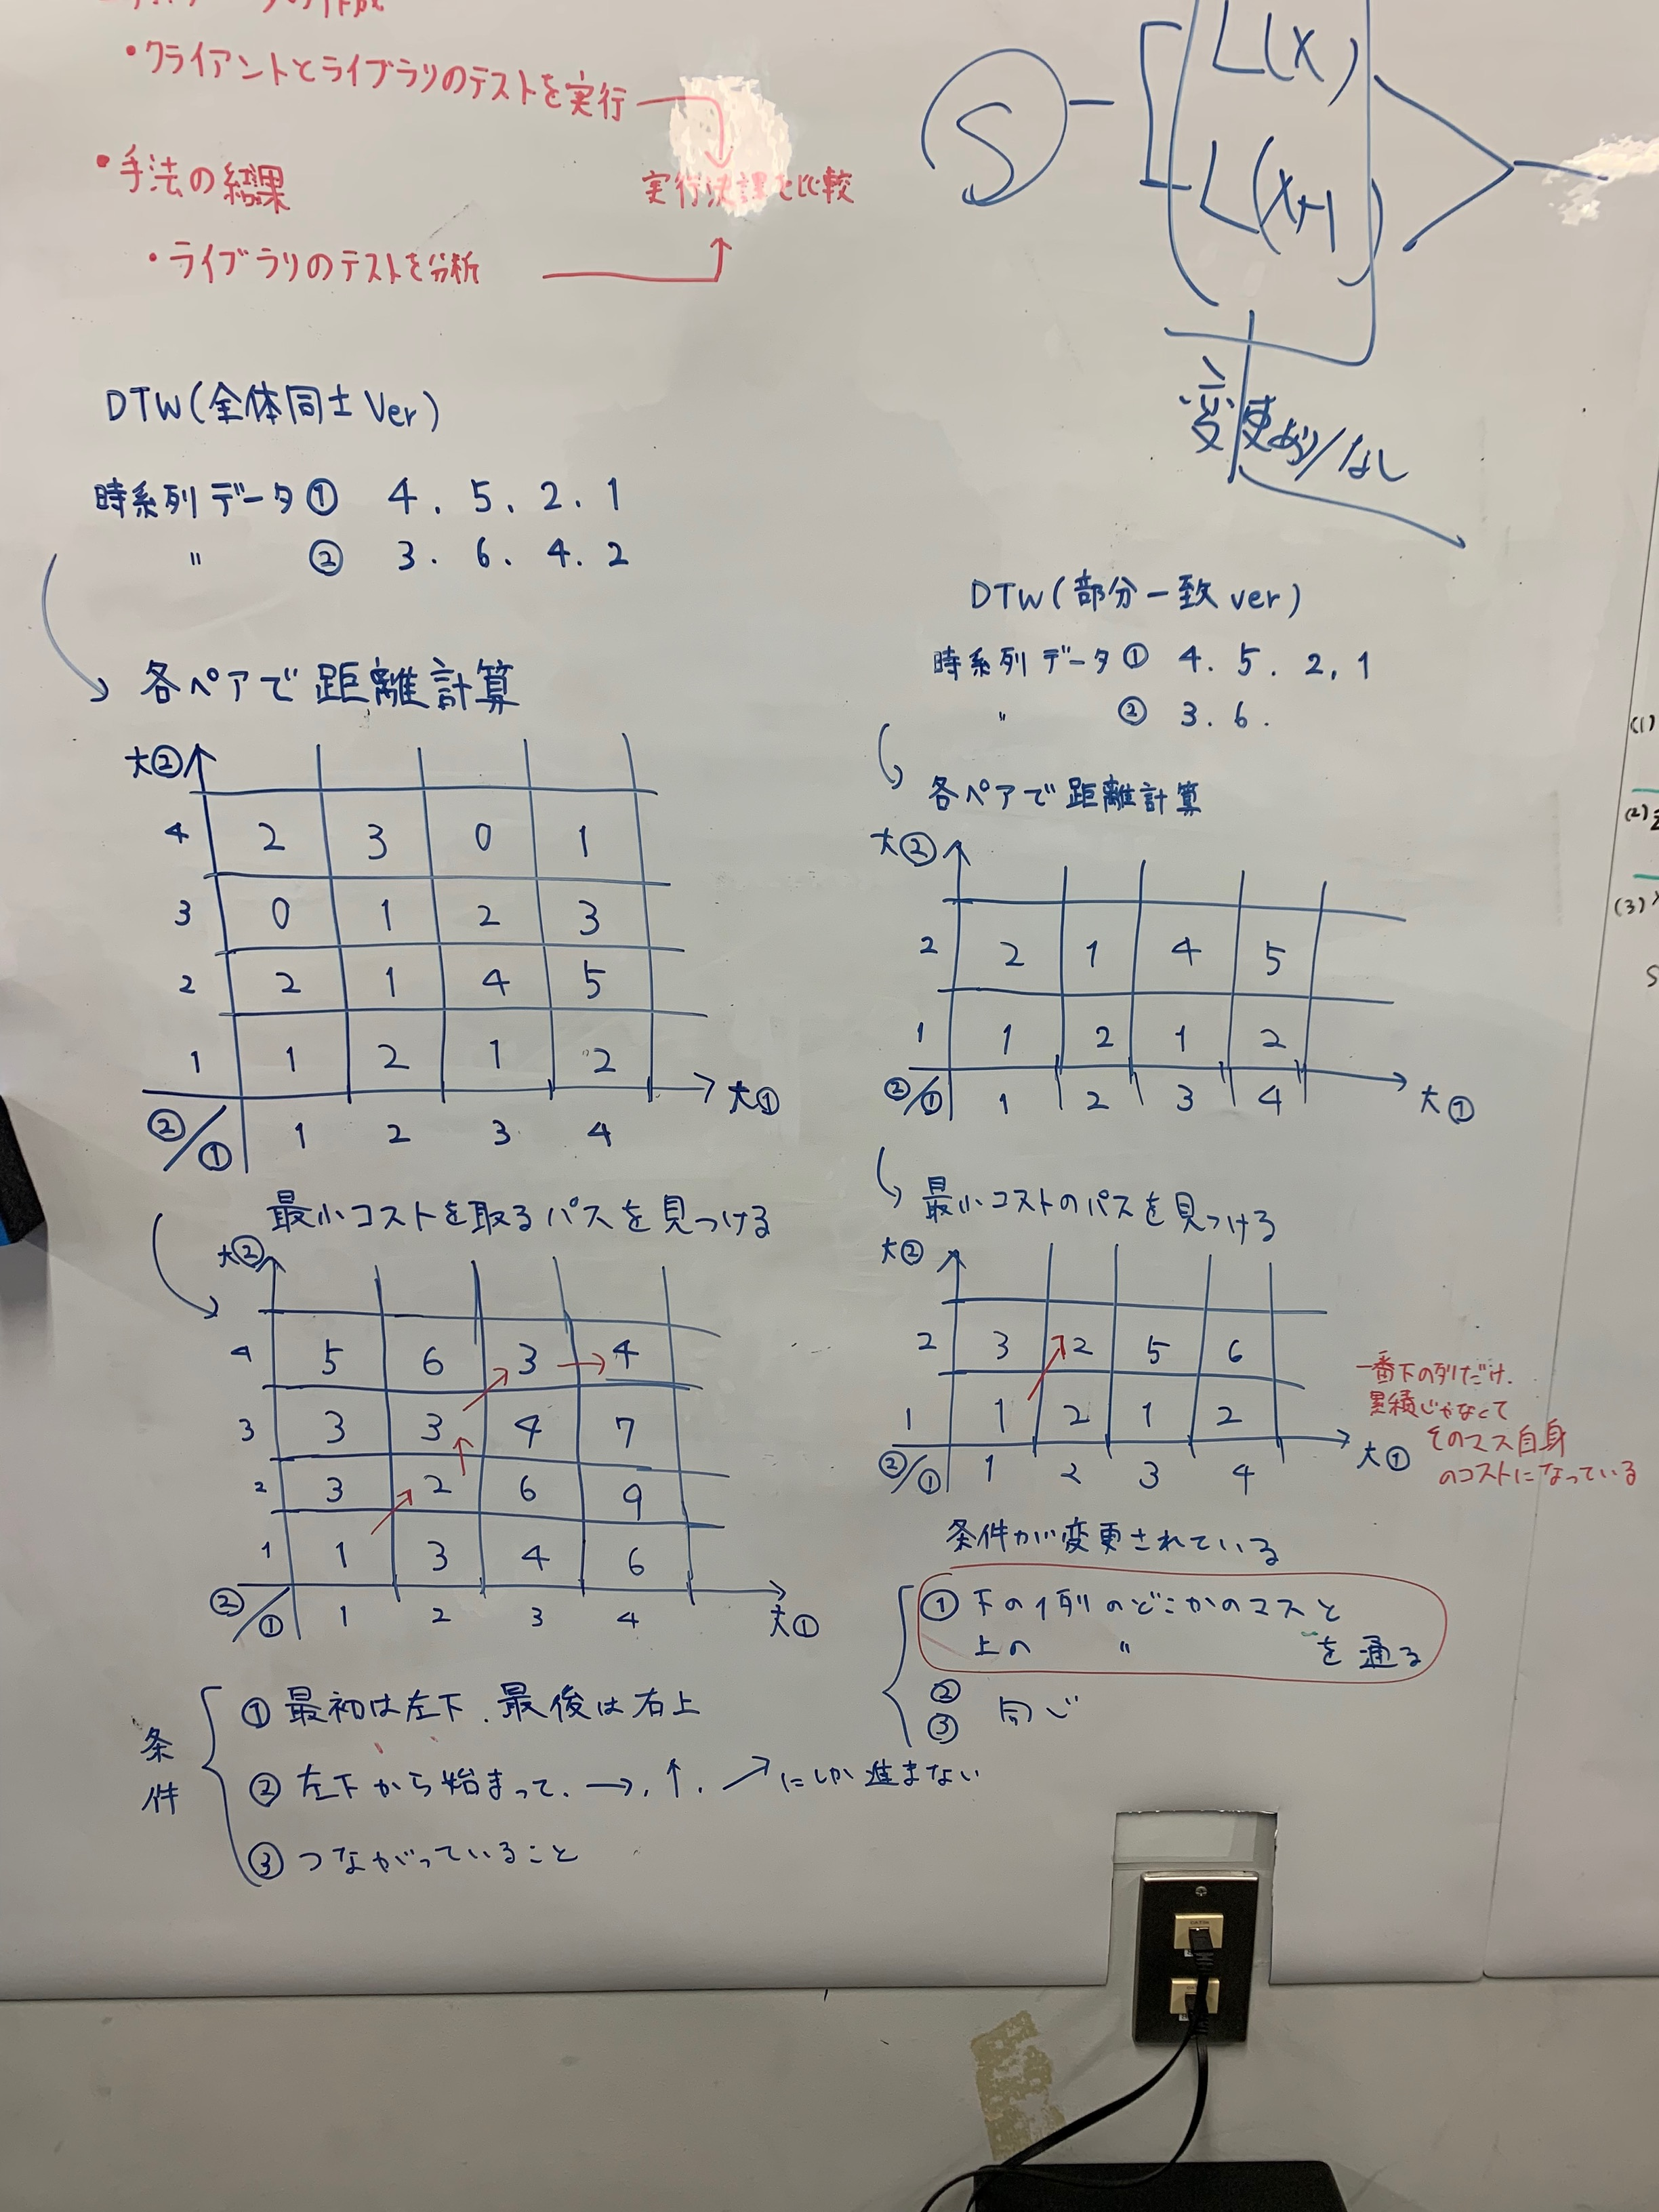 ・クライアントとライブラリのテストを実行
・手法の結果
実行決課を比較
・ライブラリのテストを分析
S
L(X)
L(X+1)
変更あり/なし
DTW(全体同士Ver)
時系列データ① 4. 5. 2. 1
〃 ② 3. 6. 4. 2
各ペアで距離計算
大②
4 2 3 0 1
3 0 1 2 3
2 2 1 4 5
1 1 2 1 2
大①
②/① 1 2 3 4
最小コストを取るパスを見つける
大②
4 5 6 3 → 4
3 3 3 4 7
2 3 2 6 9
1 1 3 4 6
②/① 1 2 3 4 大①
条件
① 最初は左下.最後は右上
② 左下から始まって. →. ↑. ↗にしか進まない
③ つながっていること
DTW(部分一致ver)
時系列データ① 4. 5. 2, 1
〃 ② 3. 6.
各ペアで距離計算
大②
2 2 1 4 5
1 1 2 1 2
②/① 1 2 3 4 大①
最小コストのパスを見つける
大②
2 3 2 5 6
1 1 2 1 2
②/① 1 2 3 4 大①
一番下の列だけ.
累積じゃなくて
そのマス自身
のコストになっている
条件が変更されている
① 下の1列のどこかのマスと
上の 〃 を通る
②
③ 同じ
(1)
(2)
(3)